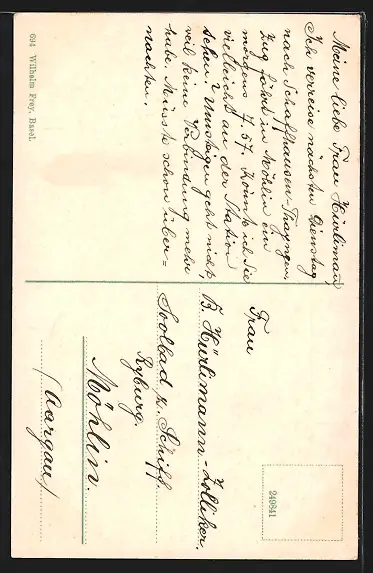 Meine liebe Frau Hürlimann,
Ich verreise nächsten Dienstag
nach Schaffhausen-Thayngen,
Zug fährt in Möhlin ein
morgens 7.57. Könnte ich Sie
vielleicht an der Station
sehen? Umsteigen geht nicht,
weil keine Verbindung mehr
habe. Müsste schon über=
nachten.
694 Wilhelm Frey, Basel.
Frau
B. Hürlimann-Zolliker.
Soolbad z. Schiff.
Ryburg.
Möhlin.
(Aargau)
249841